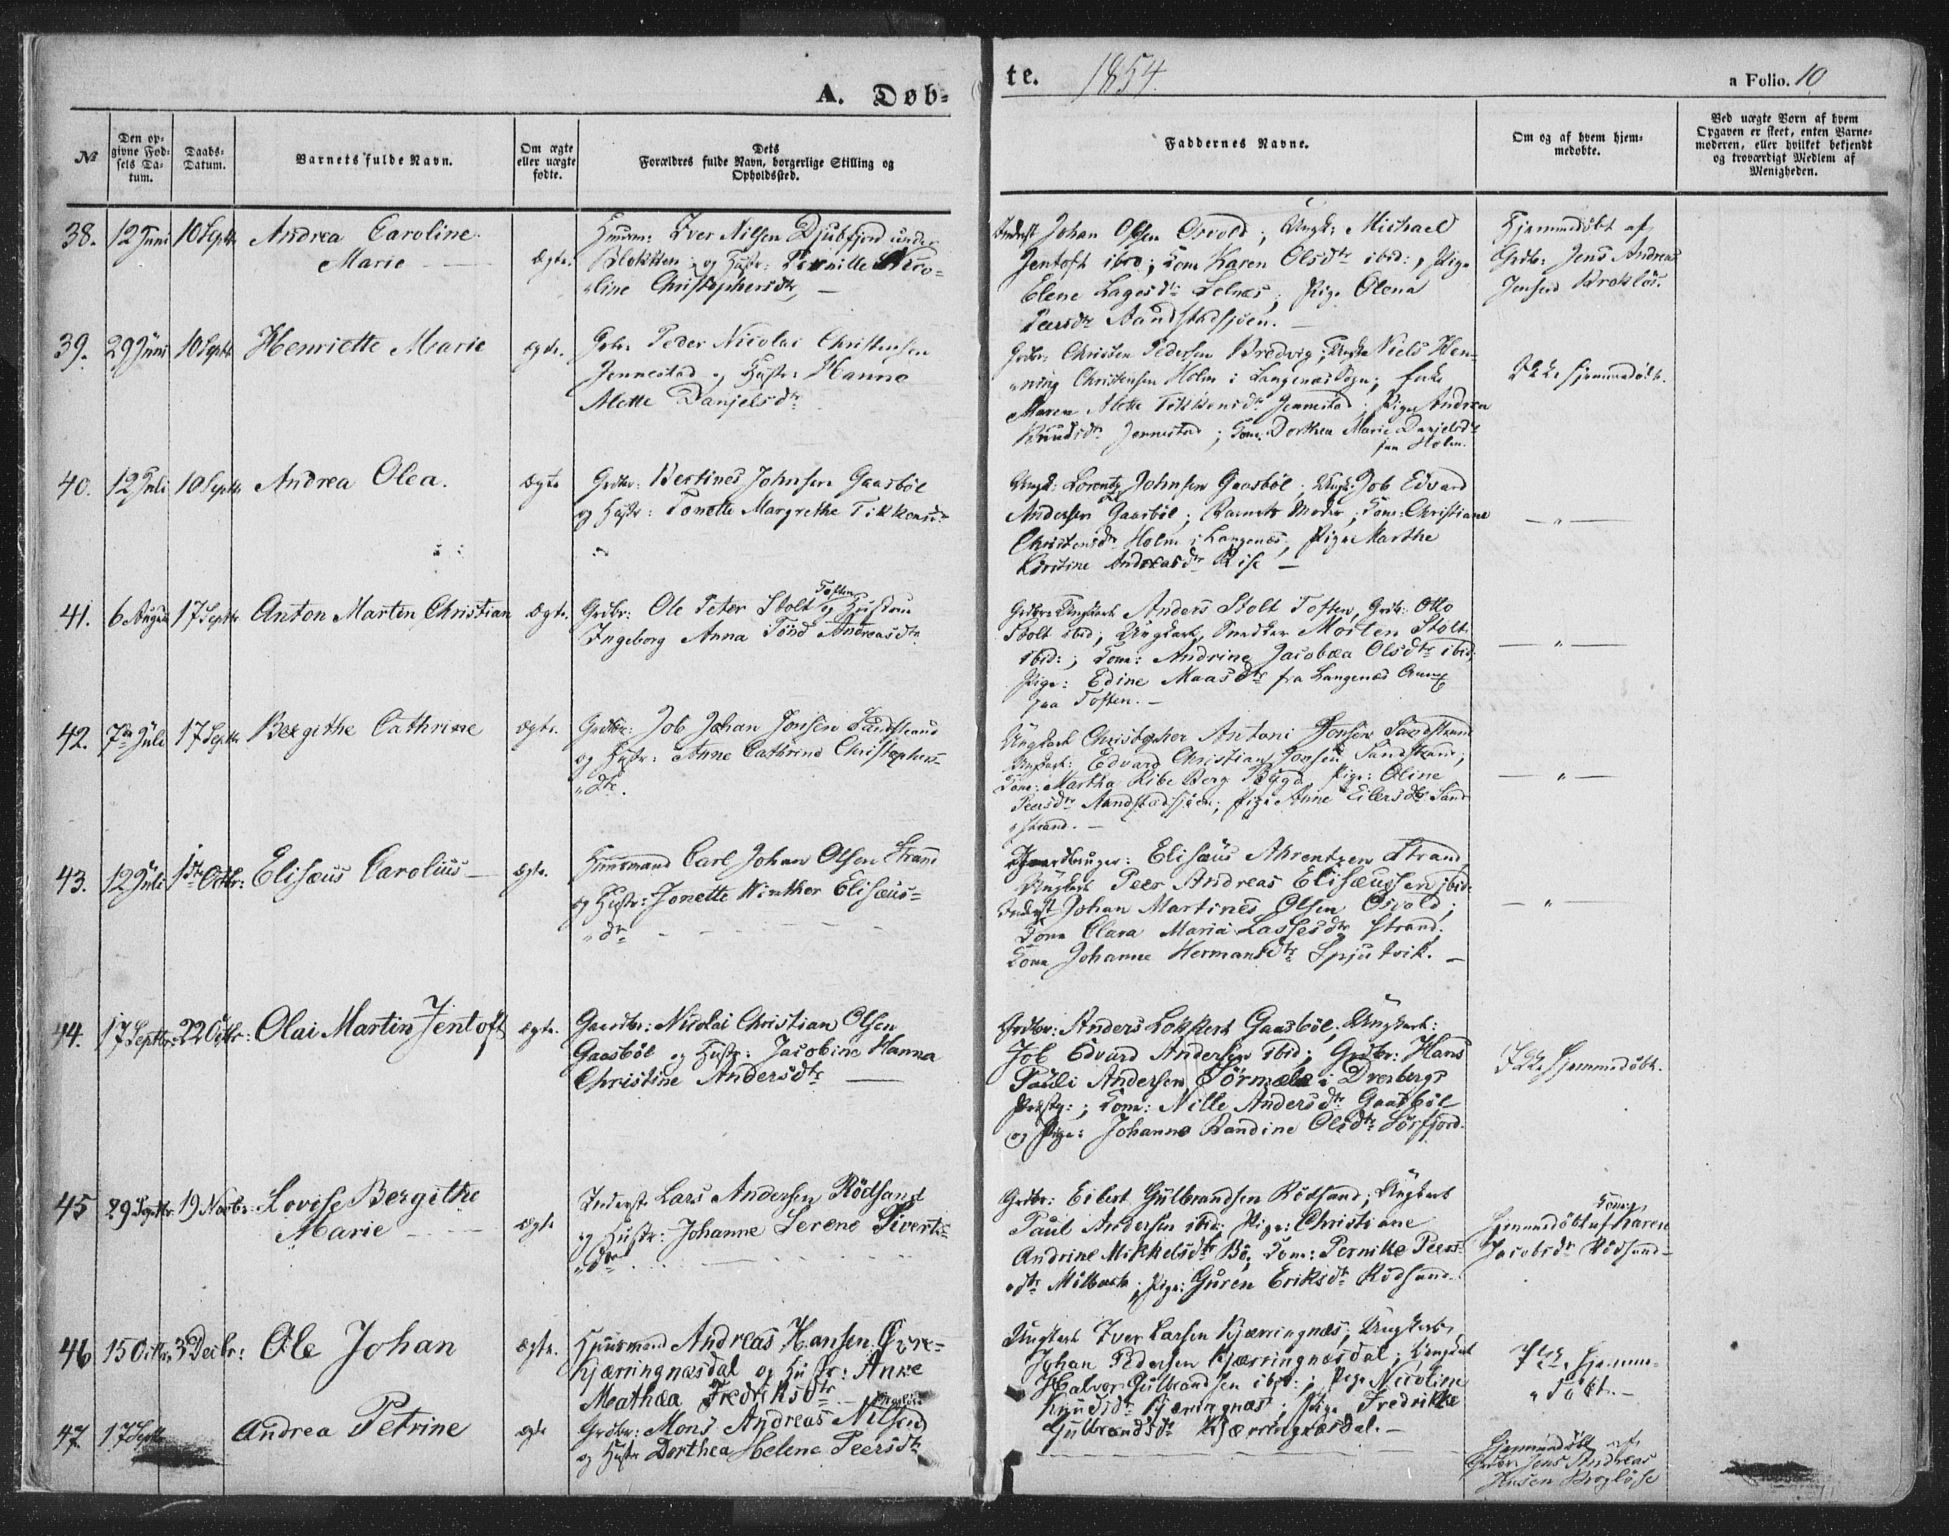 A. Døb-
te. 1854.
a Folio. 10
№
Den op-
givne Fød-
sels Da-
tum.
Daabs-
Datum.
Barnets fulde Navn.
Om ægte
eller uægte
fødte.
Dets
Forældres fulde Navn, borgerlige Stilling og
Opholdssted.
Faddernes Navne.
Om og af hvem hjem-
medøbte.
Ved uægte Børn af hvem
Opgaven er skeet, enten Barne-
moderen, eller hvilket bekjendt
og troværdigt Medlem af
Menigheden.
38. 12 Juni 10 Septr Andrea Caroline
Marie
ægte.
Huusm: Iver Nilsen Djubfjord under
og Hustr: Pernille Nico-
„line Christophersdtr
Inderst Johan Olsen Osvold; Ungk: Michael
Jentoft ibid; Kone Karen Olsdtr ibid:, Pige
Elene Lagesdtr Selnæs; Pige Olena
Peersdtr Aandstadsjøen.
Hjemmedøbt af
Grdbr: Jens Andreas
Jensen Brokløs.
39. 29 Juni 10 Septr Henriette Marie ægte.
Gbr: Peder Nicolai Christensen
Jennestad og Hustr: Hanna
Mette Danjelsdtr
Grdbr: Christen Pedersen Bredvig; Ungk: Niels Hen-
„ning Christensen Holm i Langenæs Sogn; Enke
Maren Aletta Tikkensdtr Jennestad; Pige Andrea
Knudsdtr Jennestad; Kone Dorthea Marie Danjelsdtr
fra Holm.
Ikke hjemmedøbt.
40. 12 Juli 10 Septr Andrea Olea. ægte
Grdbr: Bertines Johnsen Gaasbøl
og Hustr: Tonette Margrethe Tikkensdtr
Ungk: Lorentz Johnsen Gaasbøl; Ungk: Job Edvard
Andersen Gaasbøl; Barnets Moder; Kone: Christiane
Christensdtr Holm i Langenæs, Pige Marthe
Kirstine Andreasdtr Rise —
— „ —
41. 6 August 17 Septr Anton Marten Christian ægte.
Grdbr: Ole Peter Stolt Toften og Hustru
Ingeborg Anna Tønd Andreasdtr
Grdbr: Ungkarl Anders Stolt Toften, Grdb: Otto
Stolt ibid; Ungkarl, Snedker Morten Stolt
ibid:; Kone: Andrine Jacobæa Olsdtr ibid;
Pige: Edine Maasdtr fra Langenæs
paa Toften. —
— „ —
42. 7de Juli 17 Septr Bergithe Cathrine ægte.
Grdbr: Job Johan Jonsen Sandstrand
og Hustr: Anne Cathrine Christophers-
„dtr.
Ungkarl Christopher Antoni Jonsen Sandstrand
Ungkarl: Edvard Christian Jonsen Sandstrand;
Kone: Martha Ribe Berg Bygd, Pige: Oline
Peersdtr Aandstadsjøen; Pige Anne Eilersdtr Sand
„strand. —
— „ —
43. 12 Juli 1ste Octbr: Elisæus Carolius — ægte.
Huusmand Carl Johan Olsen Strand
og Hustr: Jonette Winther Elisæus-
„dtr
Gaardbruger: Elisæus Ahrentzen Strand,
Ungkarl Peer Andreas Elisæussen ibid:
Inderst Johan Martines Olsen Osvold;
Kone Clara Maria Lassesdtr Strand.
Kone Johanne Hermansdtr Spjutvik. —
— „ —
44. 17 Septbr: 22 Octbr: Olai Martin Jentoft ægte.
Gaardbr: Nicolai Christian Olsen
Gaasbøl og Hustr: Jacobine Hanna
Christine Andersdtr —
Grdbr: Anders Lokkert Gaasbøl, Ungkarl:
Job Edvard Andersen ibid; Grdbr: Hans
Pauli Andersen, Sørmæle i Dverbergs
Præstg:; Kone: Nille Andersdtr Gaasbøl
og Pige: Johanna Randine Olsdtr Sørfjord.
Ikke hjemmedøbt.
45 29 Septbr 19 Novbr: Lovise Bergithe
Marie
ægte
Inderst Lars Andersen Rødsand
og Hustr: Johanne Serene Siverts-
„dtr
Grdbr: Eilert Gulbrandsen Rødsand; Ungkarl
Paul Andersen ibid; Pige: Christiane
Andrine Mikkelsdtr Bø; Kone: Pernike Peers-
„dtr ; Pige: Guren Eriksdtr Rødsand.
Kone
Hjemmedøbt af Karen
Jacobsdtr Rødsand —
46 15 Octbr 3 Decbr: Ole Johan ægte.
Huusmand Andreas Hansen Øvre-
Kjærringnæsdal og Hustr: Anne
Mathæa Fredriksdtr
Ungkarl Iver Larsen Kjærringnæs; Ungkarl
Johan Pedersen Kjærringnæsdal; Ungkarl
Halvor Gulbrandsen ibid:; Pige Nicoline
Knudsdtr Kjærringnæs; Pige Fredrikke
Gulbrandsdtr Kjærringnæsdal. —
Ikke hjemme-
„døbt. —
47. 17 Septbr Andrea Petrine ægte
Grdbr: Mons Andreas Nilsen
og Hustr Dorthea Helena Peersdtr
Hjemmedøbt af
Grdbr Jens Andreas
Jensen Brogløse